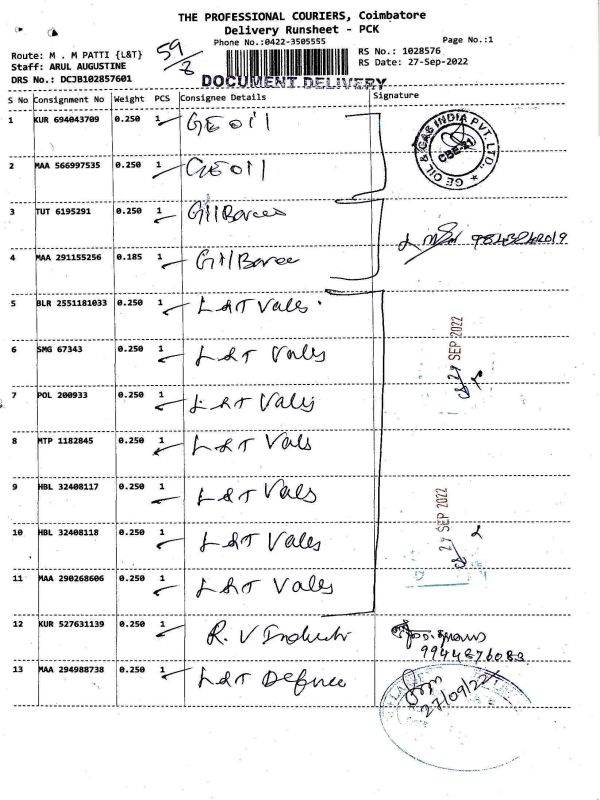 THE PROFESSIONAL COURIERS, Coimbatore
Delivery Runsheet - PCK
Phone No.:0422-3505555
Page No.:1
Route: M . M PATTI {L&T}
Staff: ARUL AUGUSTINE
DRS No.: DCJB102857601
59/8
RS No.: 1028576
RS Date: 27-Sep-2022
DOCUMENT DELIVERY
S No Consignment No Weight PCS Consignee Details Signature
1 KUR 694043709 0.250 1 GE OIl
GE OIL & GAS INDIA PVT. LTD.,
CBE-21
2 MAA 566997535 0.250 1 GE OIl
3 TUT 6195291 0.250 1
4 MAA 291155256 0.185 1
5 BLR 2551181033 0.250 1 L&T Vales
6 SMG 67343 0.250 1 L&T Vales
29 SEP 2022
7 POL 200933 0.250 1 L&T Vales
8 MTP 1182845 0.250 1 L&T Vals
9 HBL 32408117 0.250 1 L&T Vals
10 HBL 32408118 0.250 1 L&T Vales
29 SEP 2022
11 MAA 290268606 0.250 1 L&T Vales
12 KUR 527631139 0.250 1 R. V Industr
9944876083
13 MAA 294988738 0.250 1 L&T Defence
27/09/22